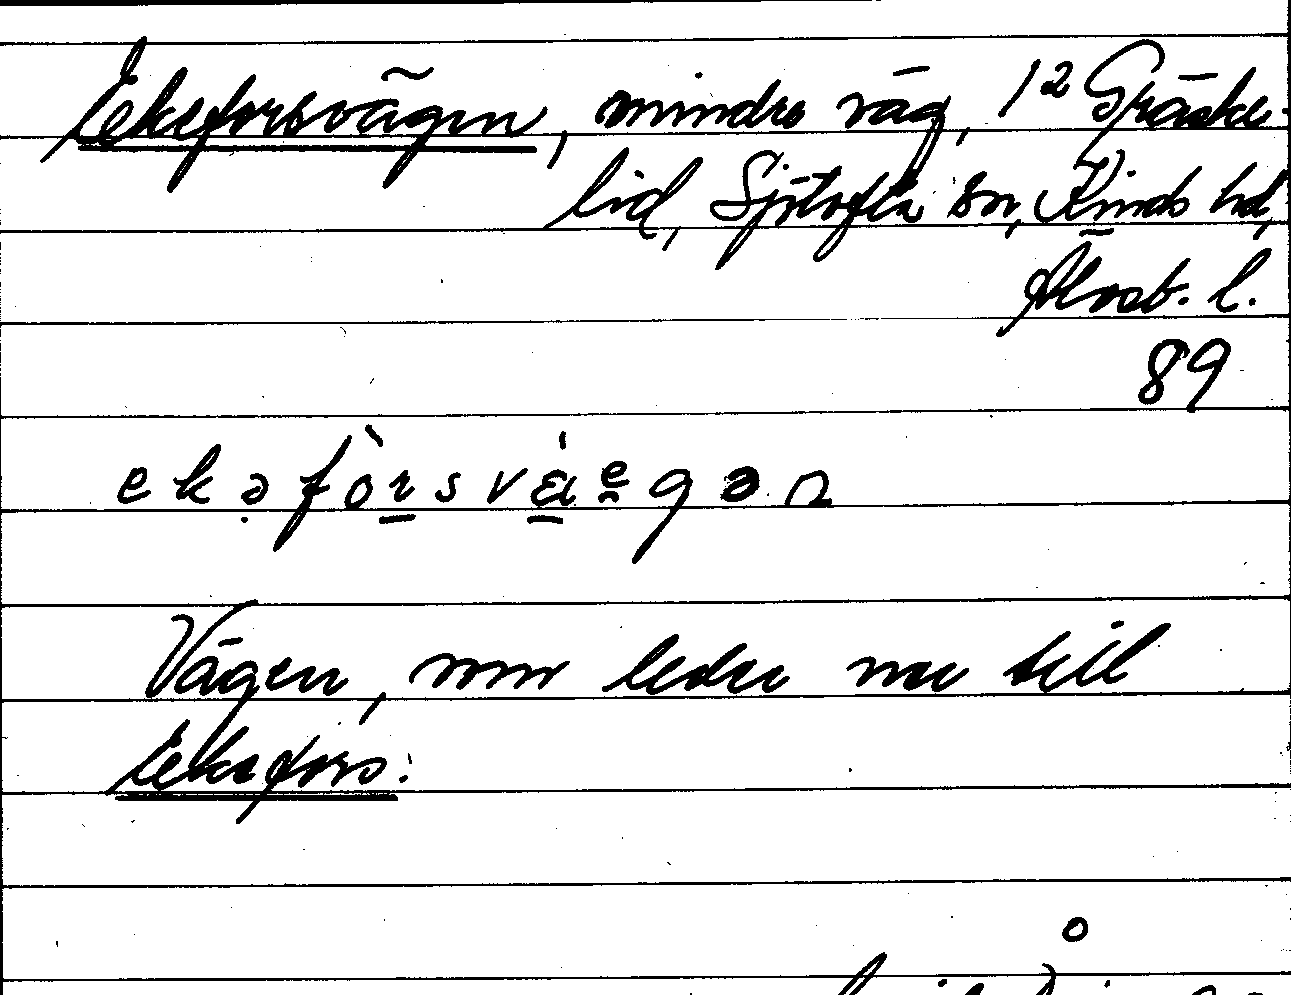 Ekeforsvägen, mindre väg, 1² Gräske-
lid, Sjötofta sn, Kinds hd,
Älvsb. l.
89
ekəfòrsvä́egən
Vägen, som leder ner till
Ekefors.